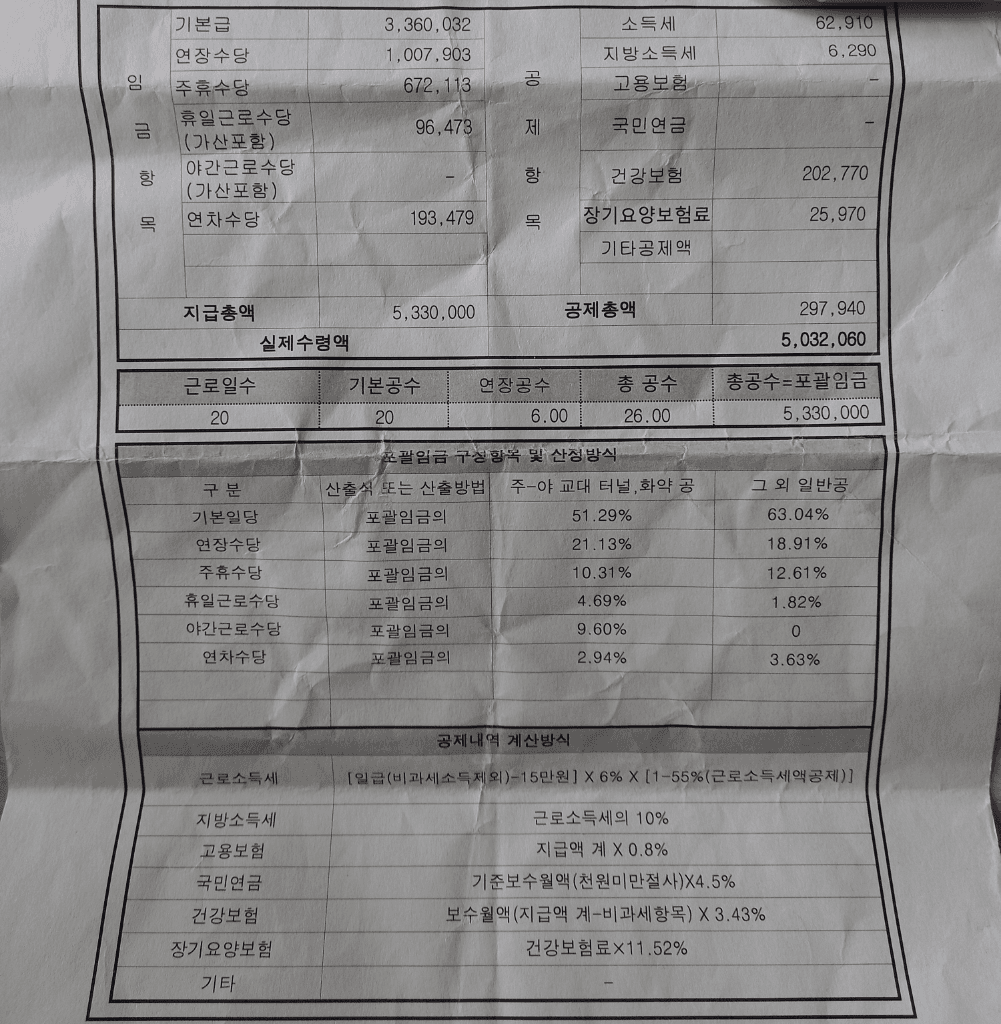 기본급 3,360,032 소득세 62,910
연장수당 1,007,903 지방소득세 6,290
임 주휴수당 672,113 공 고용보험 -
금 휴일근로수당 (가산포함) 96,473 제 국민연금 -
항 야간근로수당 (가산포함) - 항 건강보험 202,770
목 연차수당 193,479 목 장기요양보험료 25,970
기타공제액
지급총액 5,330,000 공제총액 297,940
실제수령액 5,032,060
근로일수 기본공수 연장공수 총 공수 총공수=포괄임금
20 20 6.00 26.00 5,330,000
포괄임금 구성항목 및 산정방식
구 분 산출식 또는 산출방법 주-야 교대 터널,화약 공 그 외 일반공
기본일당 포괄임금의 51.29% 63.04%
연장수당 포괄임금의 21.13% 18.91%
주휴수당 포괄임금의 10.31% 12.61%
휴일근로수당 포괄임금의 4.69% 1.82%
야간근로수당 포괄임금의 9.60% 0
연차수당 포괄임금의 2.94% 3.63%
공제내역 계산방식
근로소득세 [일급(비과세소득제외)-15만원] X 6% X [1-55%(근로소득세액공제)]
지방소득세 근로소득세의 10%
고용보험 지급액 계 X 0.8%
국민연금 기준보수월액(천원미만절사)X4.5%
건강보험 보수월액(지급액 계-비과세항목) X 3.43%
장기요양보험 건강보험료X11.52%
기타 -